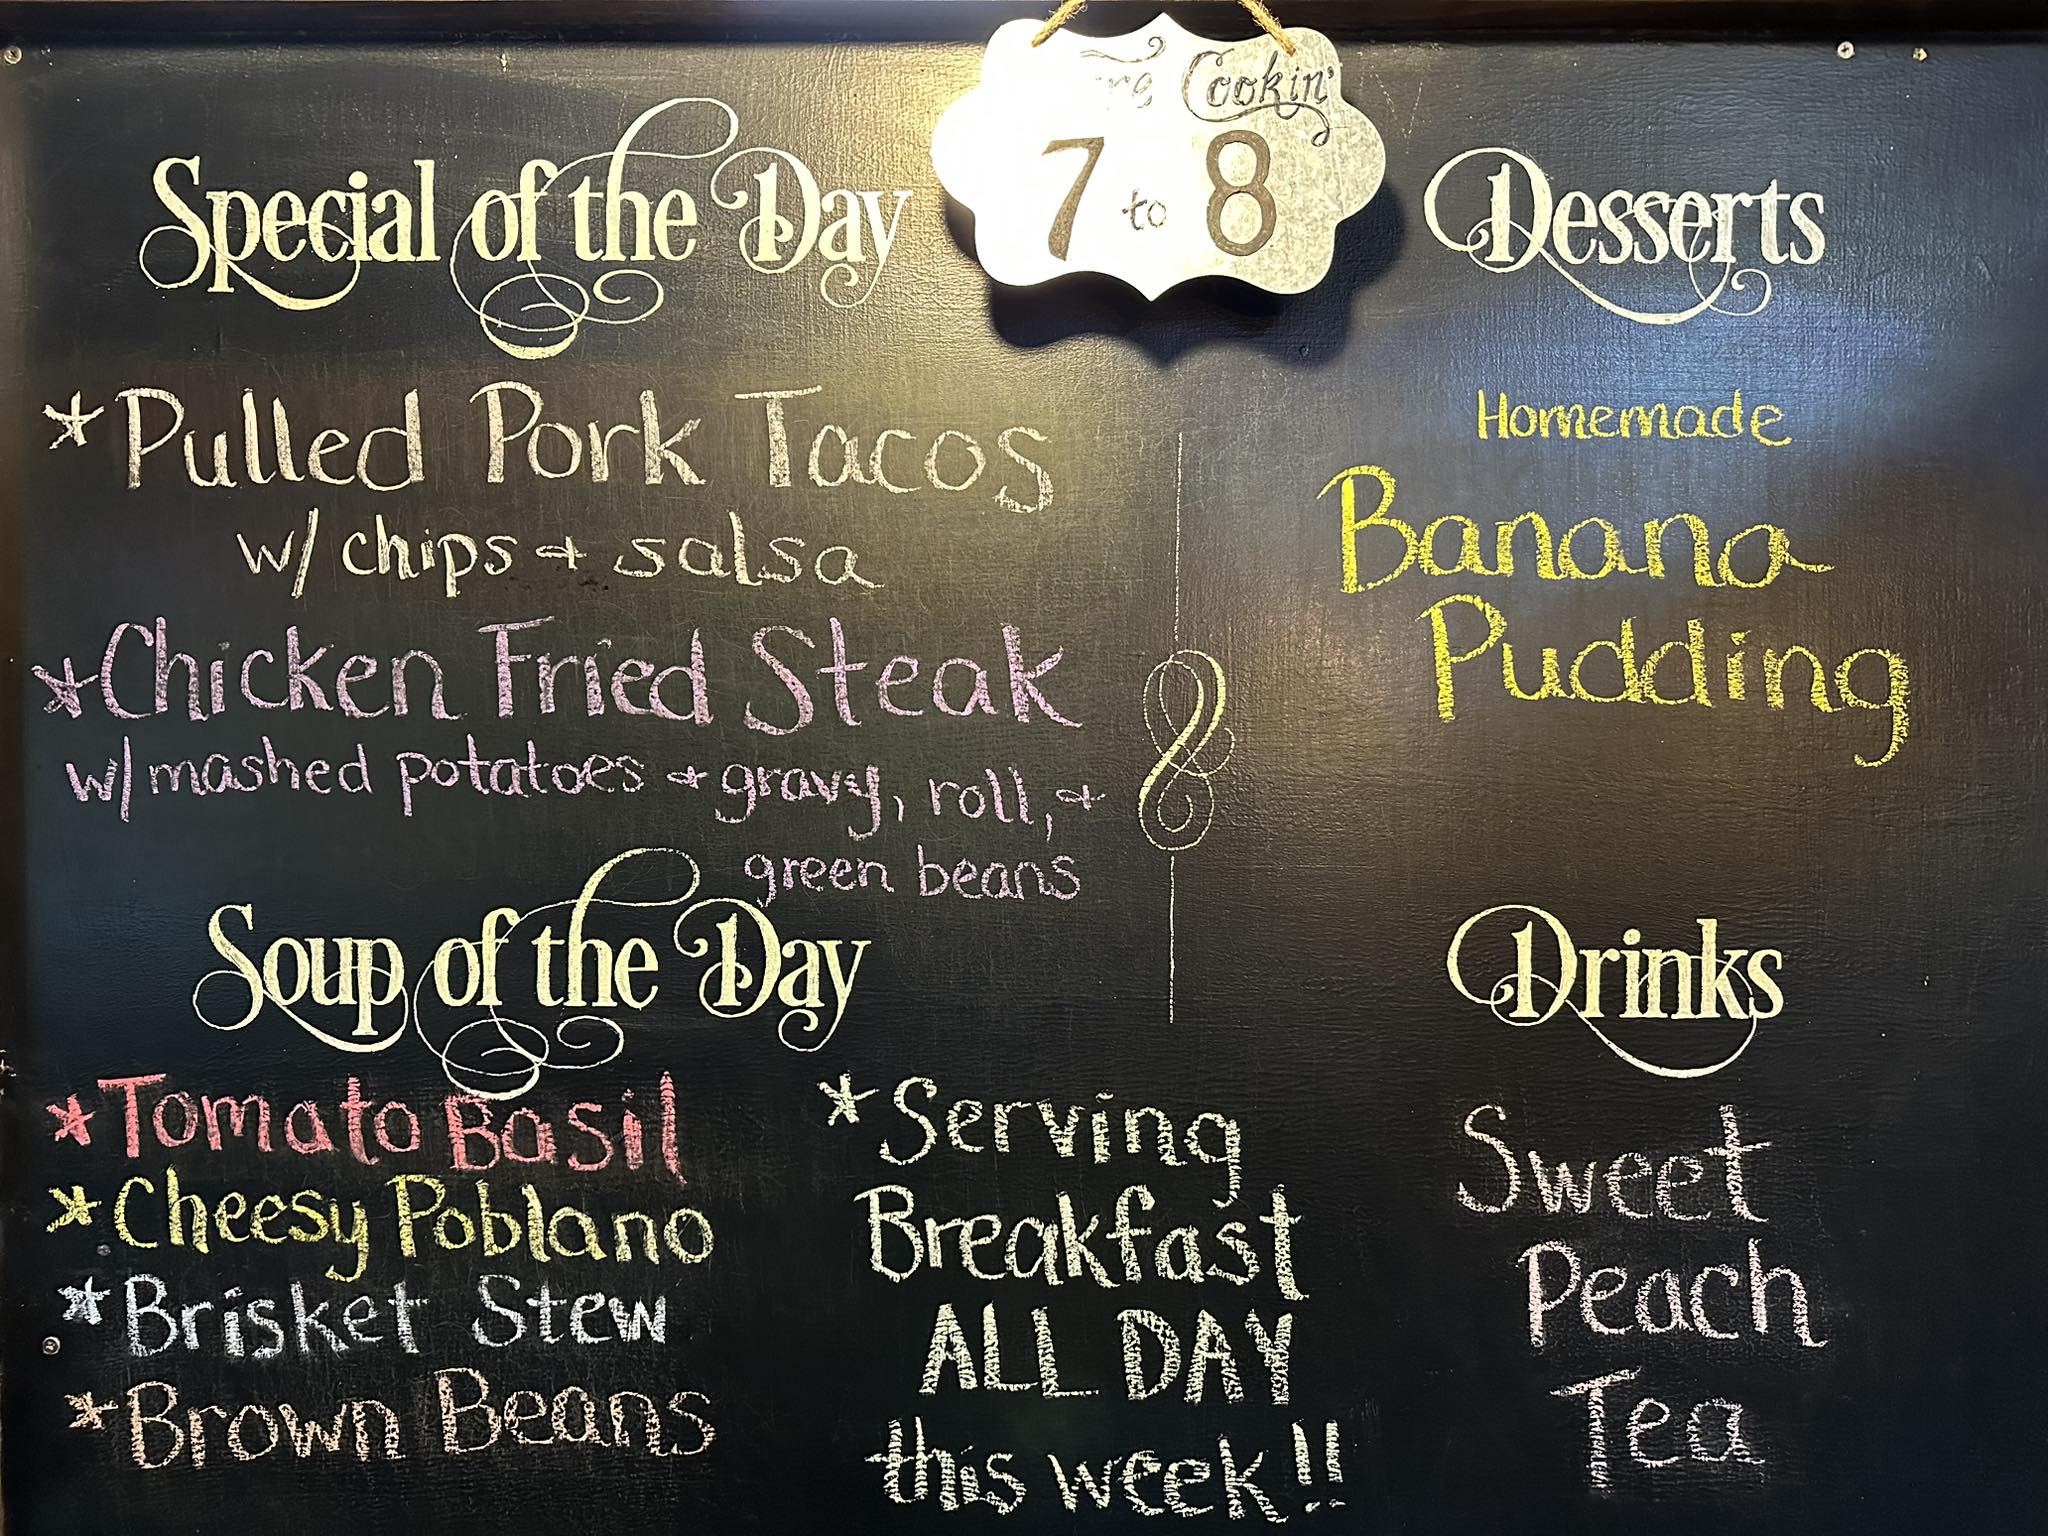 Cookin'
7 to 8
Special of the Day
*Pulled Pork Tacos
w/ chips + salsa
*Chicken Fried Steak
w/ mashed potatoes + gravy, roll, +
green beans
Soup of the Day
*Tomato Basil
*Cheesy Poblano
*Brisket Stew
*Brown Beans
*Serving
Breakfast
ALL DAY
this week!!
Desserts
Homemade
Banana
Pudding
Drinks
Sweet
Peach
Tea